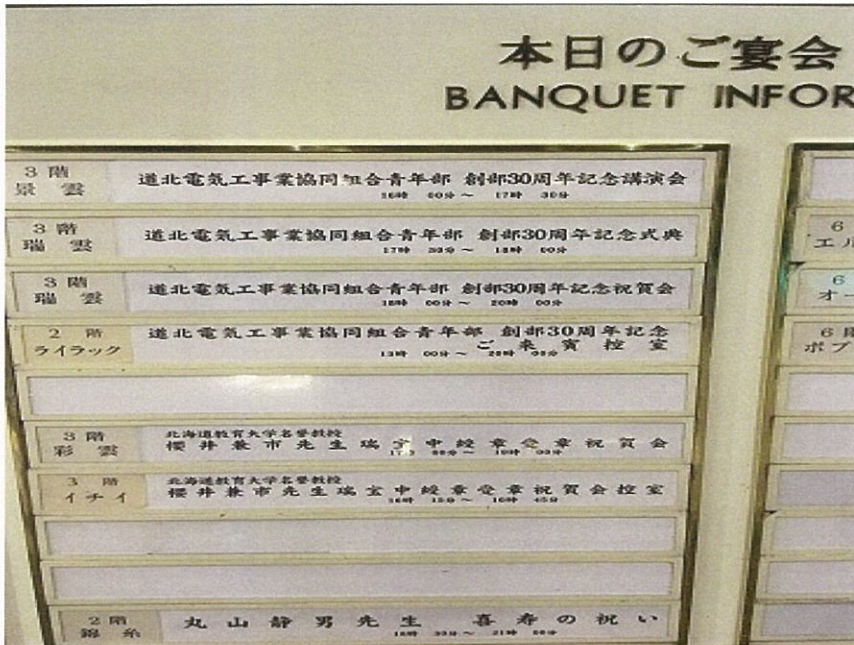 本日のご宴会
BANQUET INFOR
3階
景雲
道北電気工事業協同組合青年部 創部30周年記念講演会
16時 00分～ 17時 30分
3階
瑞雲
道北電気工事業協同組合青年部 創部30周年記念式典
17時 30分～ 18時 00分
3階
瑞雲
道北電気工事業協同組合青年部 創部30周年記念祝賀会
18時 00分～ 20時 00分
2階
ライラック
道北電気工事業協同組合青年部 創部30周年記念
ご来賓控室
13時 00分～ 20時 00分
3階
彩雲
北海道教育大学名誉教授
櫻井兼市先生瑞宝中綬章受章祝賀会
3階
イチイ
北海道教育大学名誉教授
櫻井兼市先生瑞宝中綬章受章祝賀会控室
2階
錦糸
丸山静男先生 喜寿の祝い
6
エル
6
オー
6階
ポプ